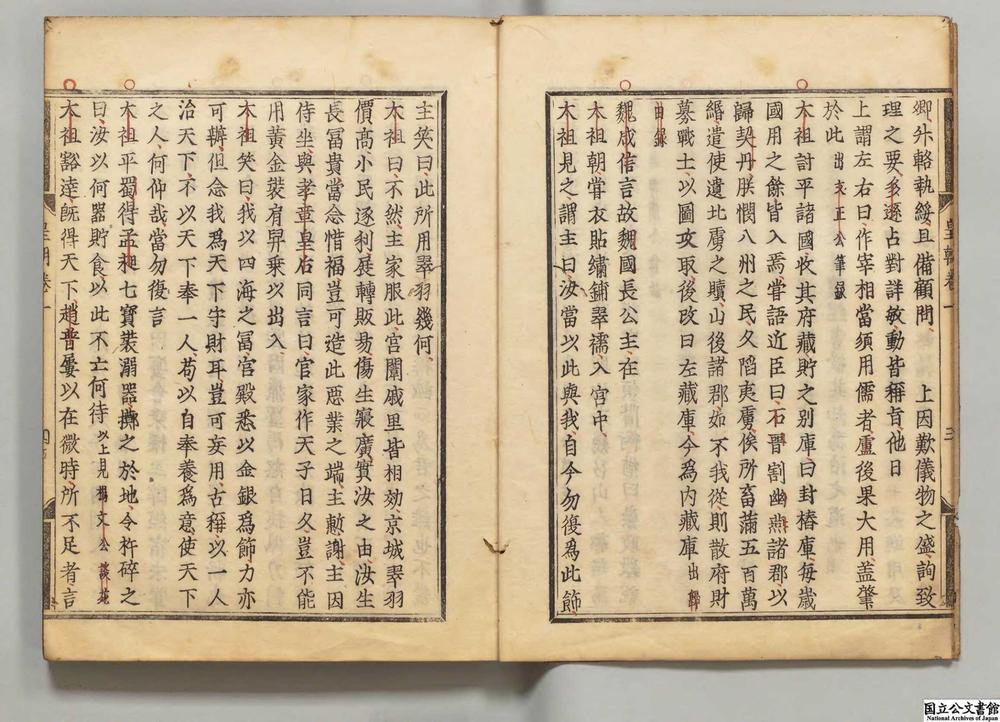 卿升輅執綏且備顧問 上因歎儀物之盛詢致
理之要多遜占對詳敏動皆稱㫖他日
上謂左右曰作宰相當須用儒者盧後果大用盖肇
於此出文正公筆録
太祖討平諸國收其府藏貯之别庫曰封樁庫每歲
國用之餘皆入焉嘗語近臣曰石晋割幽燕諸郡以
歸契丹朕憫八州之民久陷夷虜俟所畜滿五百萬
緡遣使遺北虜之贖山後諸郡如不我從則散府財
募戰士以圖攻取後改曰左藏庫今為内藏庫出
田録
魏咸信言故魏國長公主在
太祖朝嘗衣貼繡鋪翠襦入宫中
太祖見之謂主曰汝當以此與我自今勿復為此飾
皇朝卷一
三
主笑曰此所用翠羽幾何
太祖曰不然主家服此宫闈戚里皆相効京城翠羽
價高小民逐利展轉販易傷生寖廣實汝之由汝生
長冨貴當念惜福豈可造此惡業之端主慙謝主因
侍坐與孝章皇后同言曰官家作天子日久豈不能
用黄金裝肩舁乗以出入
太祖笑曰我以四海之冨宫殿悉以金銀為飾力亦
可辦但念我為天下守財耳豈可妄用古稱以一人
治天下不以天下奉一人苟以自奉養為意使天下
之人何仰哉當勿復言
太祖平蜀得孟昶七寶裝溺器擲之於地令杵碎之
曰汝以何器貯食以此不亡何待以上見楊文公談苑
太祖豁逹旣得天下趙普屢以在微時所不足者言
皇朝卷一
四
国立公文書館
National Archives of Japan